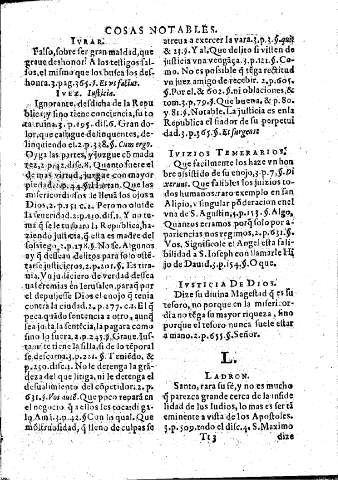 COSAS NOTABLES.
IVRAR.
Falso, sobre ser gran maldad, que
graue deshonor! A los testigos fal-
sos, el mismo que los busca los des-
honra. 3. pag. 365. §. Et vt falsus.
IVEZ. Iusticia.
Ignorante, desdicha de la Repu
blica; y sino tiene conciencia, su to
tal ruina. 2. p. 195. dis. 6. Gran do-
lor, que castigue delinquentes, de-
linquiendo el. 2. p. 338. §. Cum ergo.
Oyga las partes, y juzgue cõ mada
rez. 2. p. disc. 8. Quanto fuere el
de mas virtud, juzgue con mayor
piedad. 2. p. Que los mi
sericordiosos se lleuã los ojos a
Dios. 2. p. disc. 1. Pero no oluide
la seneridad. 2. p. disc. 1. Y no tu-
ma q̃ se le turbara la Republica, ha-
ziendo justicia, q̃ es la madre del
sosiego. 2. p. 178. §. No se. Algunos
ay q̃ dessean delitos para solo ostẽ-
tarse justicieros. 2. p. 201. §. Es tira-
nia. Vn justiciero de verdad dessea
ua Ieremias en Ierusalen, para q̃ por
el depusiesse Dios el enojo q̃ tenia
contra la ciudad. 2. p. 277. c. 2. El q̃
poco aguardò sentencia a otro, aunq̃
sea justa la sentẽcia, la pagara como
sino lo fuera. 2. p. 245. §. Graue. Ius-
taron se tiene la silla, si de lo tẽporal
se descarna. 3. p. 221. §. Timẽdo, &
p. 250. disc. 1. No le derenga la grã-
deza del que litiga, ni le derenga el
desualimiento del cõpetidor. 2. p.
631. §. Vos autẽ. Que poco repara en
el negocio q̃ a ellos les toca: di ga-
lo Amã. 3. p. 42. §. Con lo qual. Que
mõstruosidad, q̃ lleno de culpas se
atreua a exercer la vara. 3. p. 3. §. quis
& 23. §. Y al. Que delito si visten de
justicia vna vengãça. 3. p. 121. §. Co
mo. No es possible q̃ tẽga rectitud
vn juez amigo de recibir. 2. p. 605.
§. Por el, & 602. §. ni oblaciones, &
tom. 3. p. 79. §. Que buena, & p. 80.
y 81. §. Notable. La justicia es enla
Republica el fiador de su perpetui
dad. 3. p. 563. §. Et surgent
IVIZIOS TEMERARIOS.
Que facilmente los haze vn hom
bre assistido de su enojo. 3. p. 7. §. Di
xerunt. Que falibles los juizios to-
dos humanos: raro exemplo en san
Alipio, y singular põderacion en el
vna de S. Agustin. 5. p. 153. §. Algo.
Quantos erramos por q̃ solo por a-
pariencias nos regimos. 2. p. 631. §.
Vos. Significole el Angel esta fali-
bilidad a S. Ioseph con llamarle Hi
jo de Dauid. 3. p. 154. §. O que.
IVSTICIA DE DIOS.
Dize su diuina Magestad q̃ es su
tesoro, no porque en la misericor-
dia no tẽga su mayor riqueza, sino
porque el tesoro nunca suele estar
a mano. 2. p. 635. §. Señor.
L.
LADRON.
Santo, rara su fé, y no es mucho
q̃ parezca grande cerca de la infide
lidad de lus Iudios, lo mas es ser tã
eminente a vista de los Apostoles.
3. p. 309. todo el disc. 4. S. Maximo
Tt 3
dize